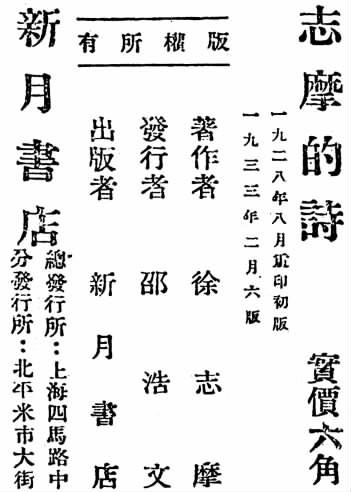 志摩的詩
實價六角
一九二八年八月重印初版
一九三三年二月六版
版權所有
著作者 徐志摩
發行者 邵浩文
出版者 新月書店
新月書店
總發行所：上海四馬路中
分發行所：北平米市大街